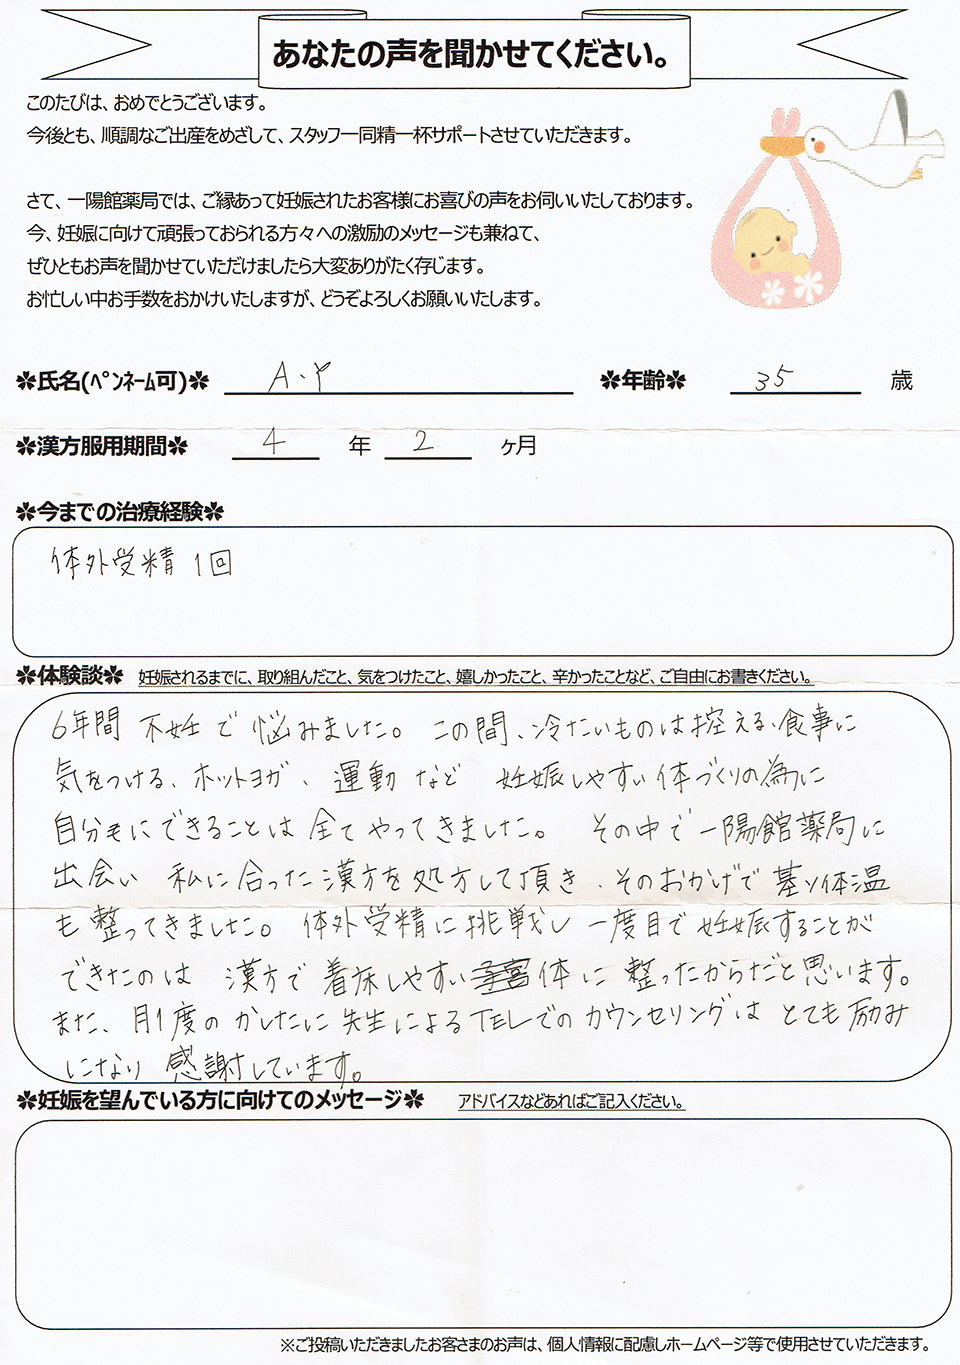 あなたの声を聞かせてください。
このたびは、おめでとうございます。
今後とも、順調なご出産をめざして、スタッフ一同精一杯サポートさせていただきます。
さて、一陽館薬局では、ご縁あって妊娠されたお客様にお喜びの声をお伺いいたしております。
今、妊娠に向けて頑張っておられる方々への激励のメッセージも兼ねて、
ぜひともお声を聞かせていただけましたら大変ありがたく存じます。
お忙しい中お手数をおかけいたしますが、どうぞよろしくお願いいたします。
✽氏名(ペンネーム可)✽ A.Y ✽年齢✽ 35 歳
✽漢方服用期間✽ 4 年 2 ヶ月
✽今までの治療経験✽
体外受精 1回
✽体験談✽ 妊娠されるまでに、取り組んだこと、気をつけたこと、嬉しかったこと、辛かったことなど、ご自由にお書きください。
6年間 不妊で悩みました。この間、冷たいものは控える、食事に
気をつける、ホットヨガ、運動など 妊娠しやすい体づくりの為に
自分もにできることは全てやってきました。その中で一陽館薬局に
出会い 私に合った漢方を処方して頂き、そのおかげで基ソ体温
も整ってきました。体外受精に挑戦し一度目で妊娠することが
できたのは 漢方で着床しやすい体に整ったからだと思います。
また、月1度のかしたに先生によるTELでのカウンセリングはとても励み
になり 感謝しています。
✽妊娠を望んでいる方に向けてのメッセージ✽ アドバイスなどあればご記入ください。
※ご投稿いただきましたお客さまのお声は、個人情報に配慮しホームページ等で使用させていただきます。